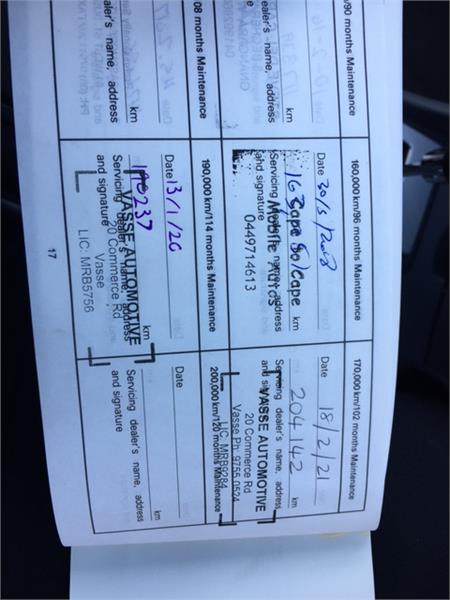 0/90 months Maintenance
km
ealer's name, address
160,000 km/96 months Maintenance
Date 30/5/2018
Cape to Cape km
Servicing dealer's name, address
and signature
MOBILE AUTOS
0449714613
170,000 km/102 months Maintenance
Date 18/2/21
204142 km
Servicing dealer's name, address
and signature
VASSE AUTOMOTIVE
20 Commerce Rd
Vasse Ph: 9755 0524
LIC: MRB9284
08 months Maintenance
km
ealer's name, address
190,000 km/114 months Maintenance
Date 13/1/20
190237 km
Servicing dealer's name, address
and signature
VASSE AUTOMOTIVE
20 Commerce Rd
Vasse
LIC: MRB5756
200,000 km/120 months Maintenance
Date
km
Servicing dealer's name, address
and signature
17